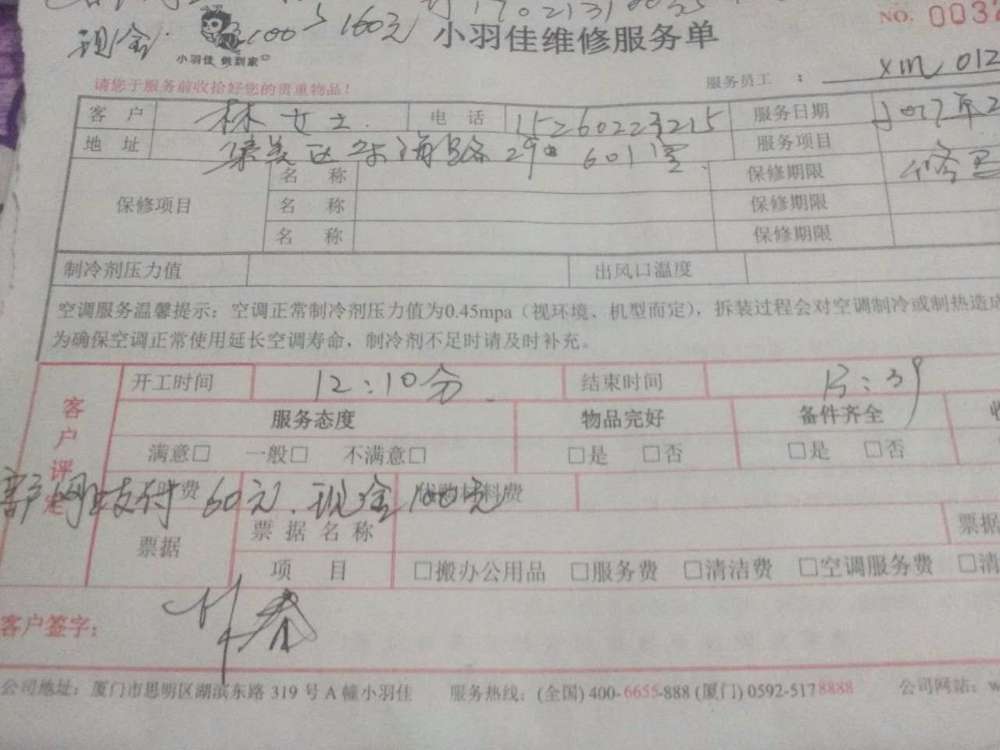 NO. 003
现金 100 160元 小羽佳维修服务单
小羽佳 做到家
请您于服务前收拾好您的贵重物品! 服务员工 : XM 012
客户 林女士 电话 15260223215 服务日期 2017年2
地址 集美区 海路29 601室 服务项目
保修项目 名称 保修期限 修
名称 保修期限
名称 保修期限
制冷剂压力值 出风口温度
空调服务温馨提示:空调正常制冷剂压力值为0.45mpa(视环境、机型而定),拆装过程会对空调制冷或制热造成
为确保空调正常使用延长空调寿命,制冷剂不足时请及时补充。
客户评定
开工时间 12:10分 结束时间 13:39
服务态度 物品完好 备件齐全
满意□ 一般□ 不满意□ □是 □否 □是 □否
费 材料费
客户网上支付60元.现金100元
票据 票据名称 票据
项目 □搬办公用品 □服务费 □清洁费 □空调服务费 □清
客户签字:
公司地址:厦门市思明区湖滨东路 319 号 A 幢小羽佳 服务热线:(全国) 400-6655-888 (厦门) 0592-5178888 公司网站:w